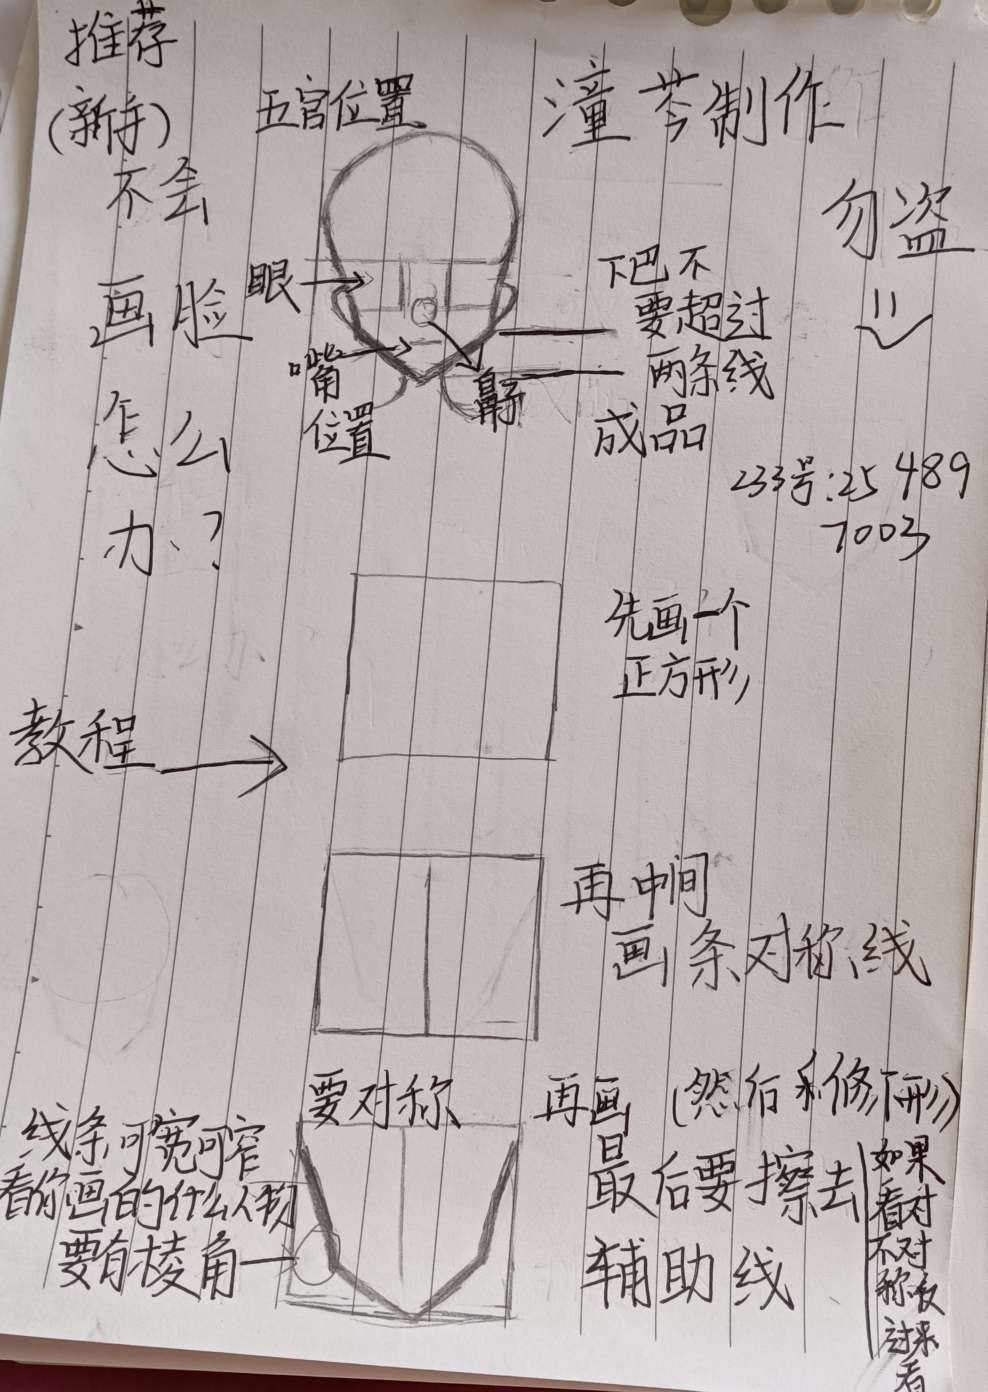 推荐
(新手)
不会
画脸
怎么
办?
五官位置
潼芩制作
勿盗
眼
嘴角
位置
鼻子
下巴不
要超过
两条线
成品
233号:25489
7003
教程
先画一个
正方形
再中间
画条对称线
要对称
再画(然后修下形)
最后要擦去
辅助线
线条可宽可窄
看你画的什么人物
要有棱角
如果
看对
不对
称反
过来
看